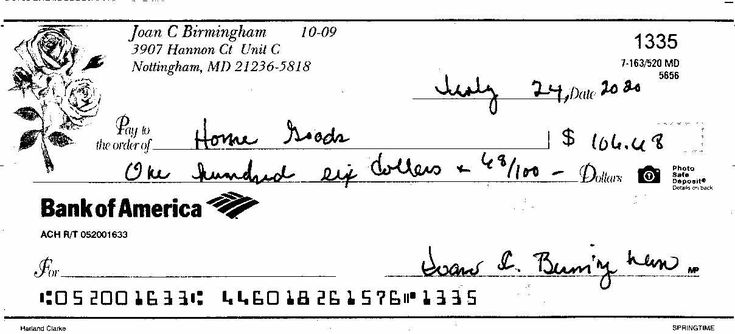 Joan C Birmingham 10-09
3907 Hannon Ct Unit C
Nottingham, MD 21236-5818
1335
7-163/520 MD
5656
July 24, Date 2020
Pay to the order of Home Goods $ 106.48
One hundred six dollars + 48/100 — Dollars
Photo Safe Deposit® Details on back
Bank of America
ACH R/T 052001633
For
Joan C. Birmingham MP
⑆052001633⑆ 446018261576⑈1335
Harland Clarke SPRINGTIME